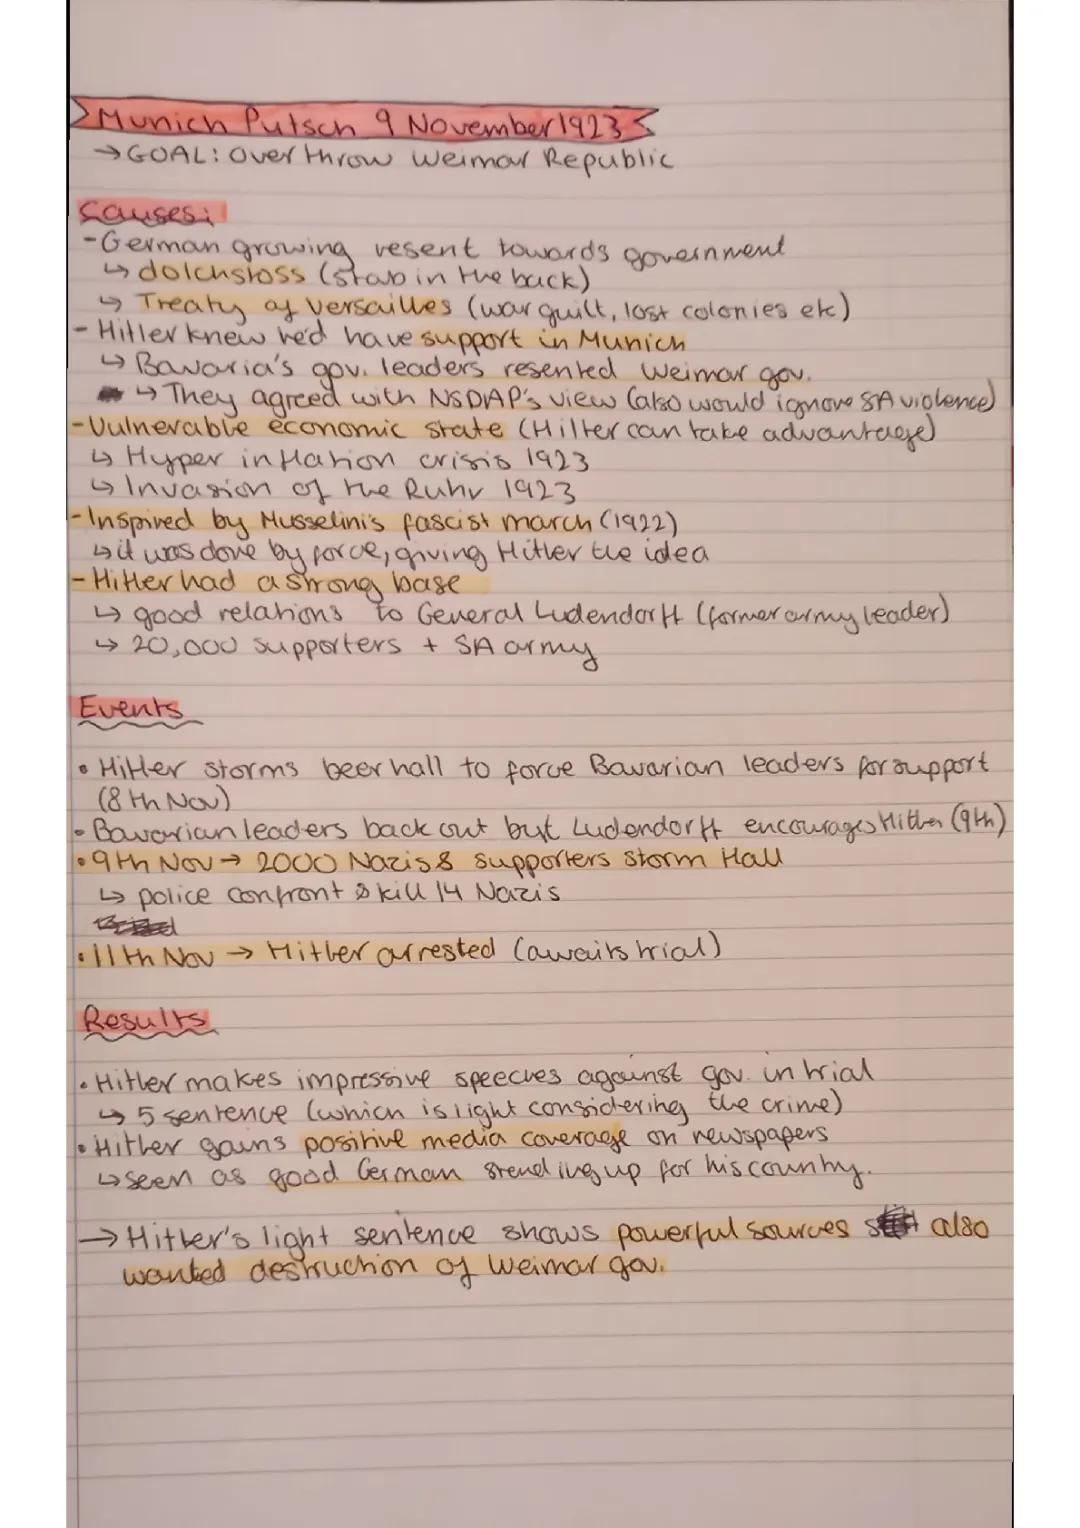 Munich Putsch 9 November 1923
→ GOAL: Overthrow Weimar Republic
Causes:
- German growing resent towards government
↳ dolchstoss (stab in the back)
↳ Treaty of Versailles (war guilt, lost colonies etc)
- Hitler knew he'd have support in Munich
↳ Bavaria's gov. leaders resented Weimar gov.
↳ They agreed with NSDAP's view (also would ignore SA violence)
- Vulnerable economic state (Hilter can take advantage)
↳ Hyper inflation crisis 1923
↳ Invasion of the Ruhr 1923
- Inspired by Musselini's fascist march (1922)
↳ it was done by force, giving Hitler the idea
- Hitler had a strong base
↳ good relations to General Ludendorff (former army leader)
↳ 20,000 supporters + SA army
Events
• Hitler storms beer hall to force Bavarian leaders for support
(8th Nov)
• Bavarian leaders back out but Ludendorff encourages Hitler (9th)
• 9th Nov → 2000 Nazis & supporters storm Hall
↳ police confront & kill 14 Nazis
• 11th Nov → Hitler arrested (awaits trial)
Results
• Hitler makes impressive speeches against gov. in trial
↳ 5 sentence (which is light considering the crime)
• Hitler gains positive media coverage on newspapers
↳ seen as good German standing up for his country.
→ Hitler's light sentence shows powerful sources also
wanted destruction of Weimar gov.